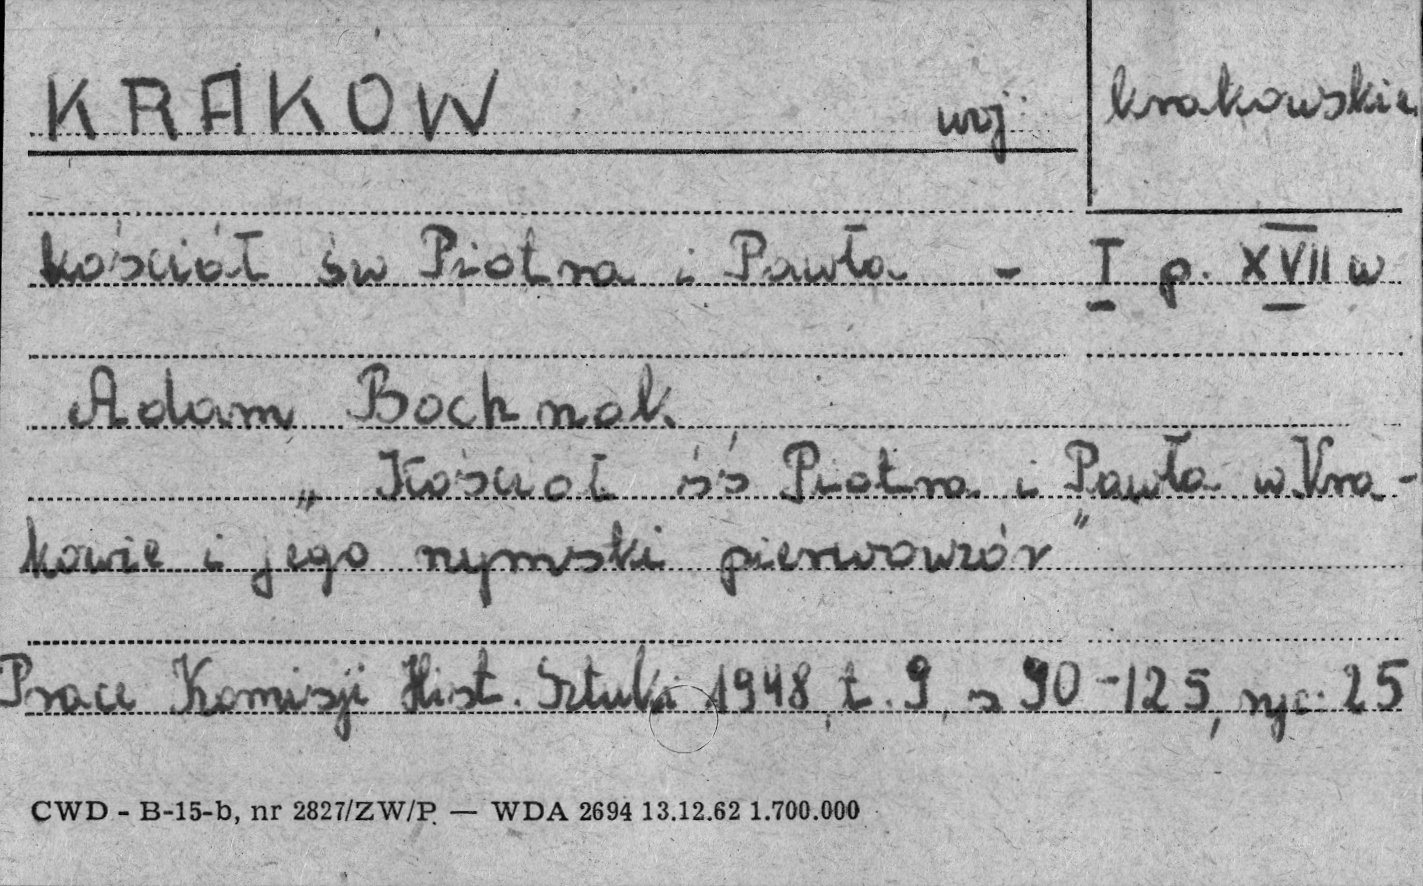 KRAKOW woj. krakowskie
kościół św Piotra i Pawła - I p. XVII w
Adam Bochnak
„Kościół śś Piotra i Pawła w Kra-
kowie i jego rzymski pierwowzór"
Prace Komisji Hist. Sztuki 1948, t. 9, s 90-125, ryc. 25
CWD - B-15-b, nr 2827/ZW/P. — WDA 2694 13.12.62 1.700.000